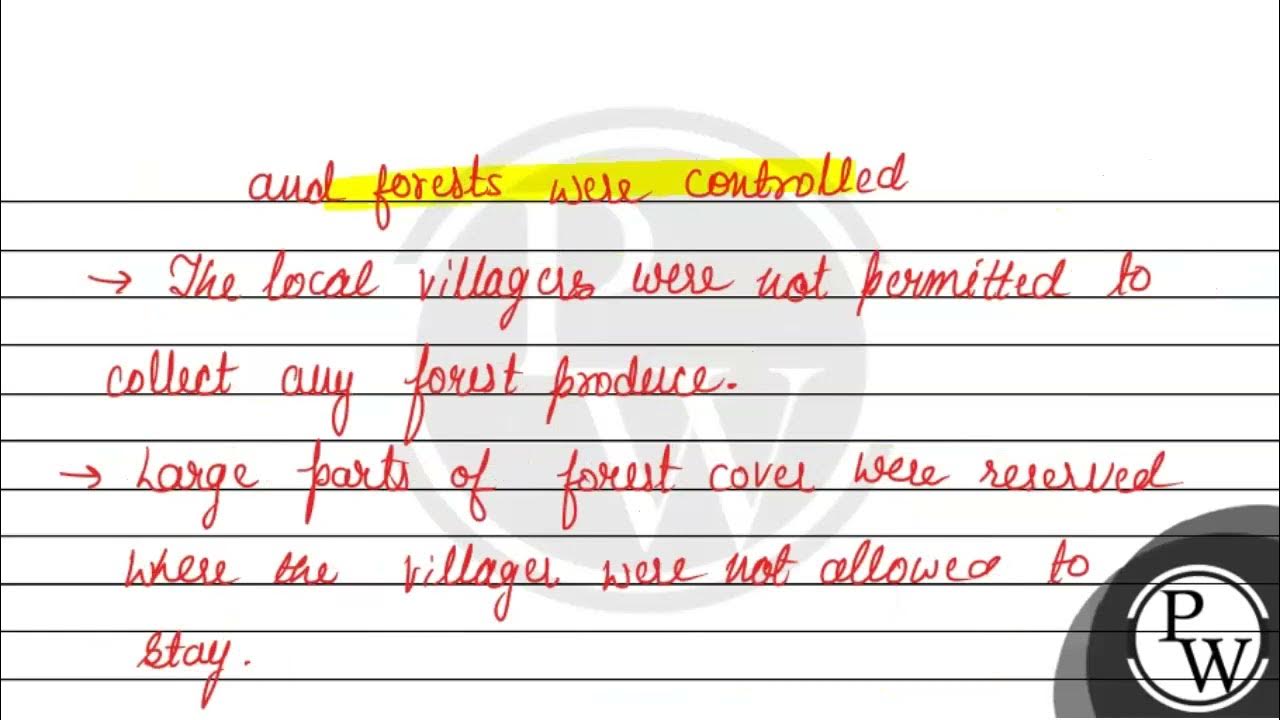 and forests were controlled
→ The local villagers were not permitted to
collect any forest produce.
→ Large parts of forest cover were reserved
where the villages were not allowed to
stay.
PW
PW